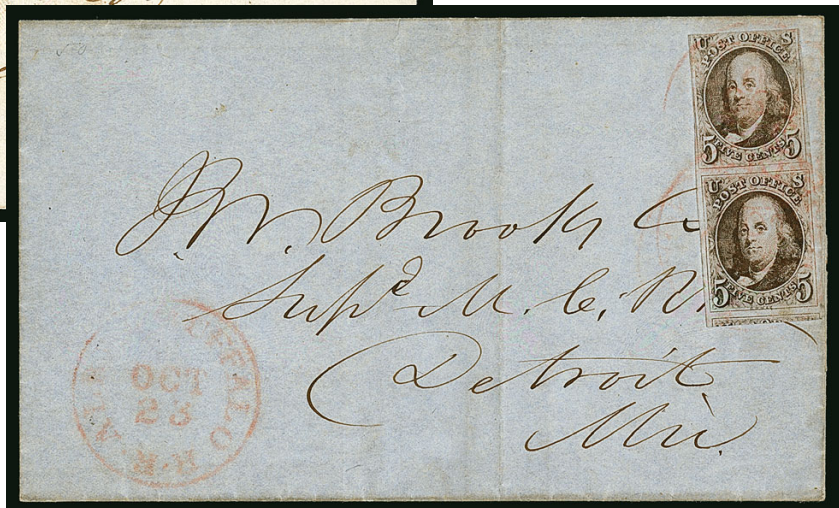 U S
POST OFFICE
5 FIVE CENTS 5
U S
POST OFFICE
5 FIVE CENTS 5
J. W. Brooks
Supd M. C. R.
Detroit
Mic.
BUFFALO N.Y.
OCT
23